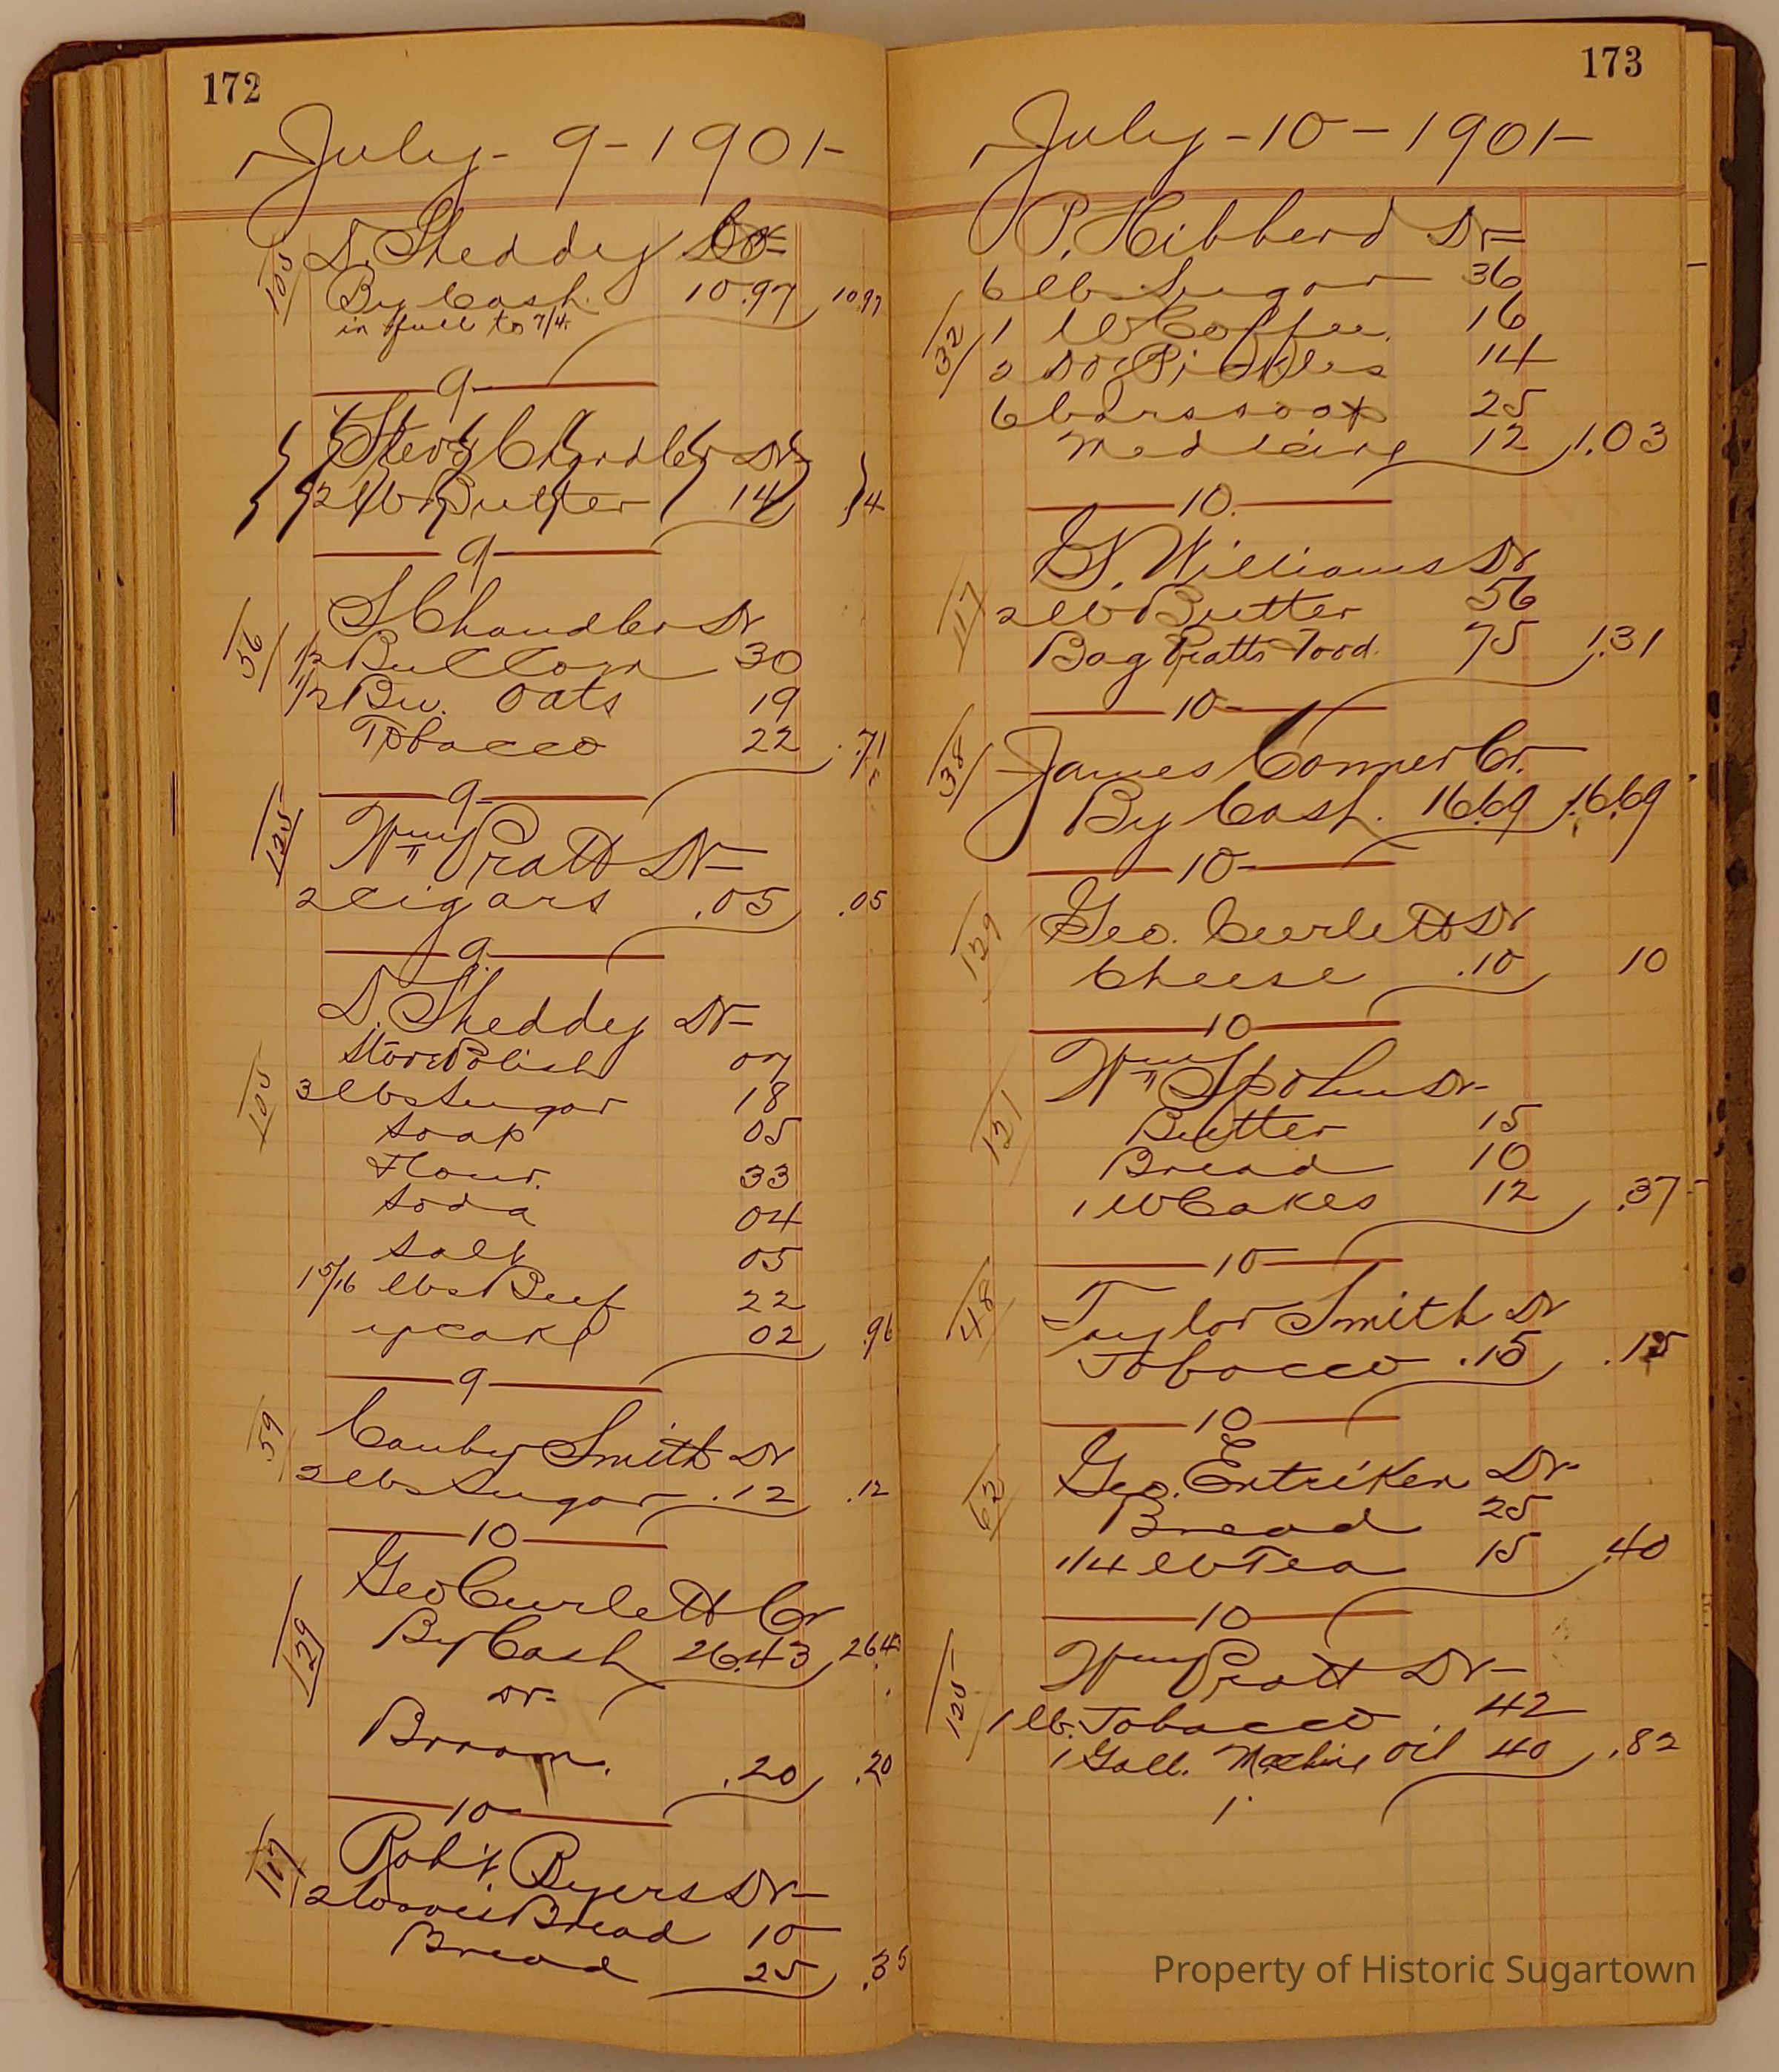 172
July - 9 - 1901 -
105 D. Sheddy Cr
By Cash. 10.97 10.97
in full to 7/4.
9
Chandler Dr
2 lb Butter 14 14
9
56 S Chandler Dr
30
1/2 Bu. Oats 19
Tobacco 22 .71
9
125 Wm Pratt Dr
2 Cigars .05 .05
9
D. Sheddy Dr
Stove Polish 07
105 3 lbs Sugar 18
Soap 05
Flour. 33
Soda 04
Salt 05
15/16 lbs Beef 22
02 .96
9
59 Canby Smith Dr
2 lbs Sugar .12 .12
10
Geo Curlett Cr
129 By Cash 26.43 26.43
Dr
Broom. .20 .20
10
117 Rob't. Byers Dr
2 loaves Bread 10
Bread 25 .35
173
July - 10 - 1901 -
P. Hibberd Dr
6 lb Sugar 36
32 1 lb Coffee. 16
2 Doz Pickles 14
6 bars soap 25
Medicine 12 1.03
10.
Williams Dr
117 2 lb Butter 56
Bag Pratts Food. 75 1.31
10
38 James Conner Cr.
By Cash. 16.69 16.69
10
129 Geo. Curlett Dr
Cheese .10 10
10
Wm Spohn Dr
131 Butter 15
Bread 10
1 lb Cakes 12 .37
10
48 Taylor Smith Dr
Tobacco .15 .15
10
Geo. Entriken Dr
62 Bread 25
1/4 lb Tea 15 .40
10
Wm Pratt Dr
125 1 lb. Tobacco 42
1 Gall. Machine Oil 40 .82
Property of Historic Sugartown